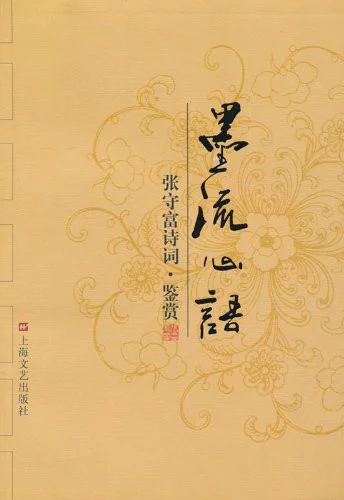 墨流心語
张守富诗词·鉴赏
上海文艺出版社